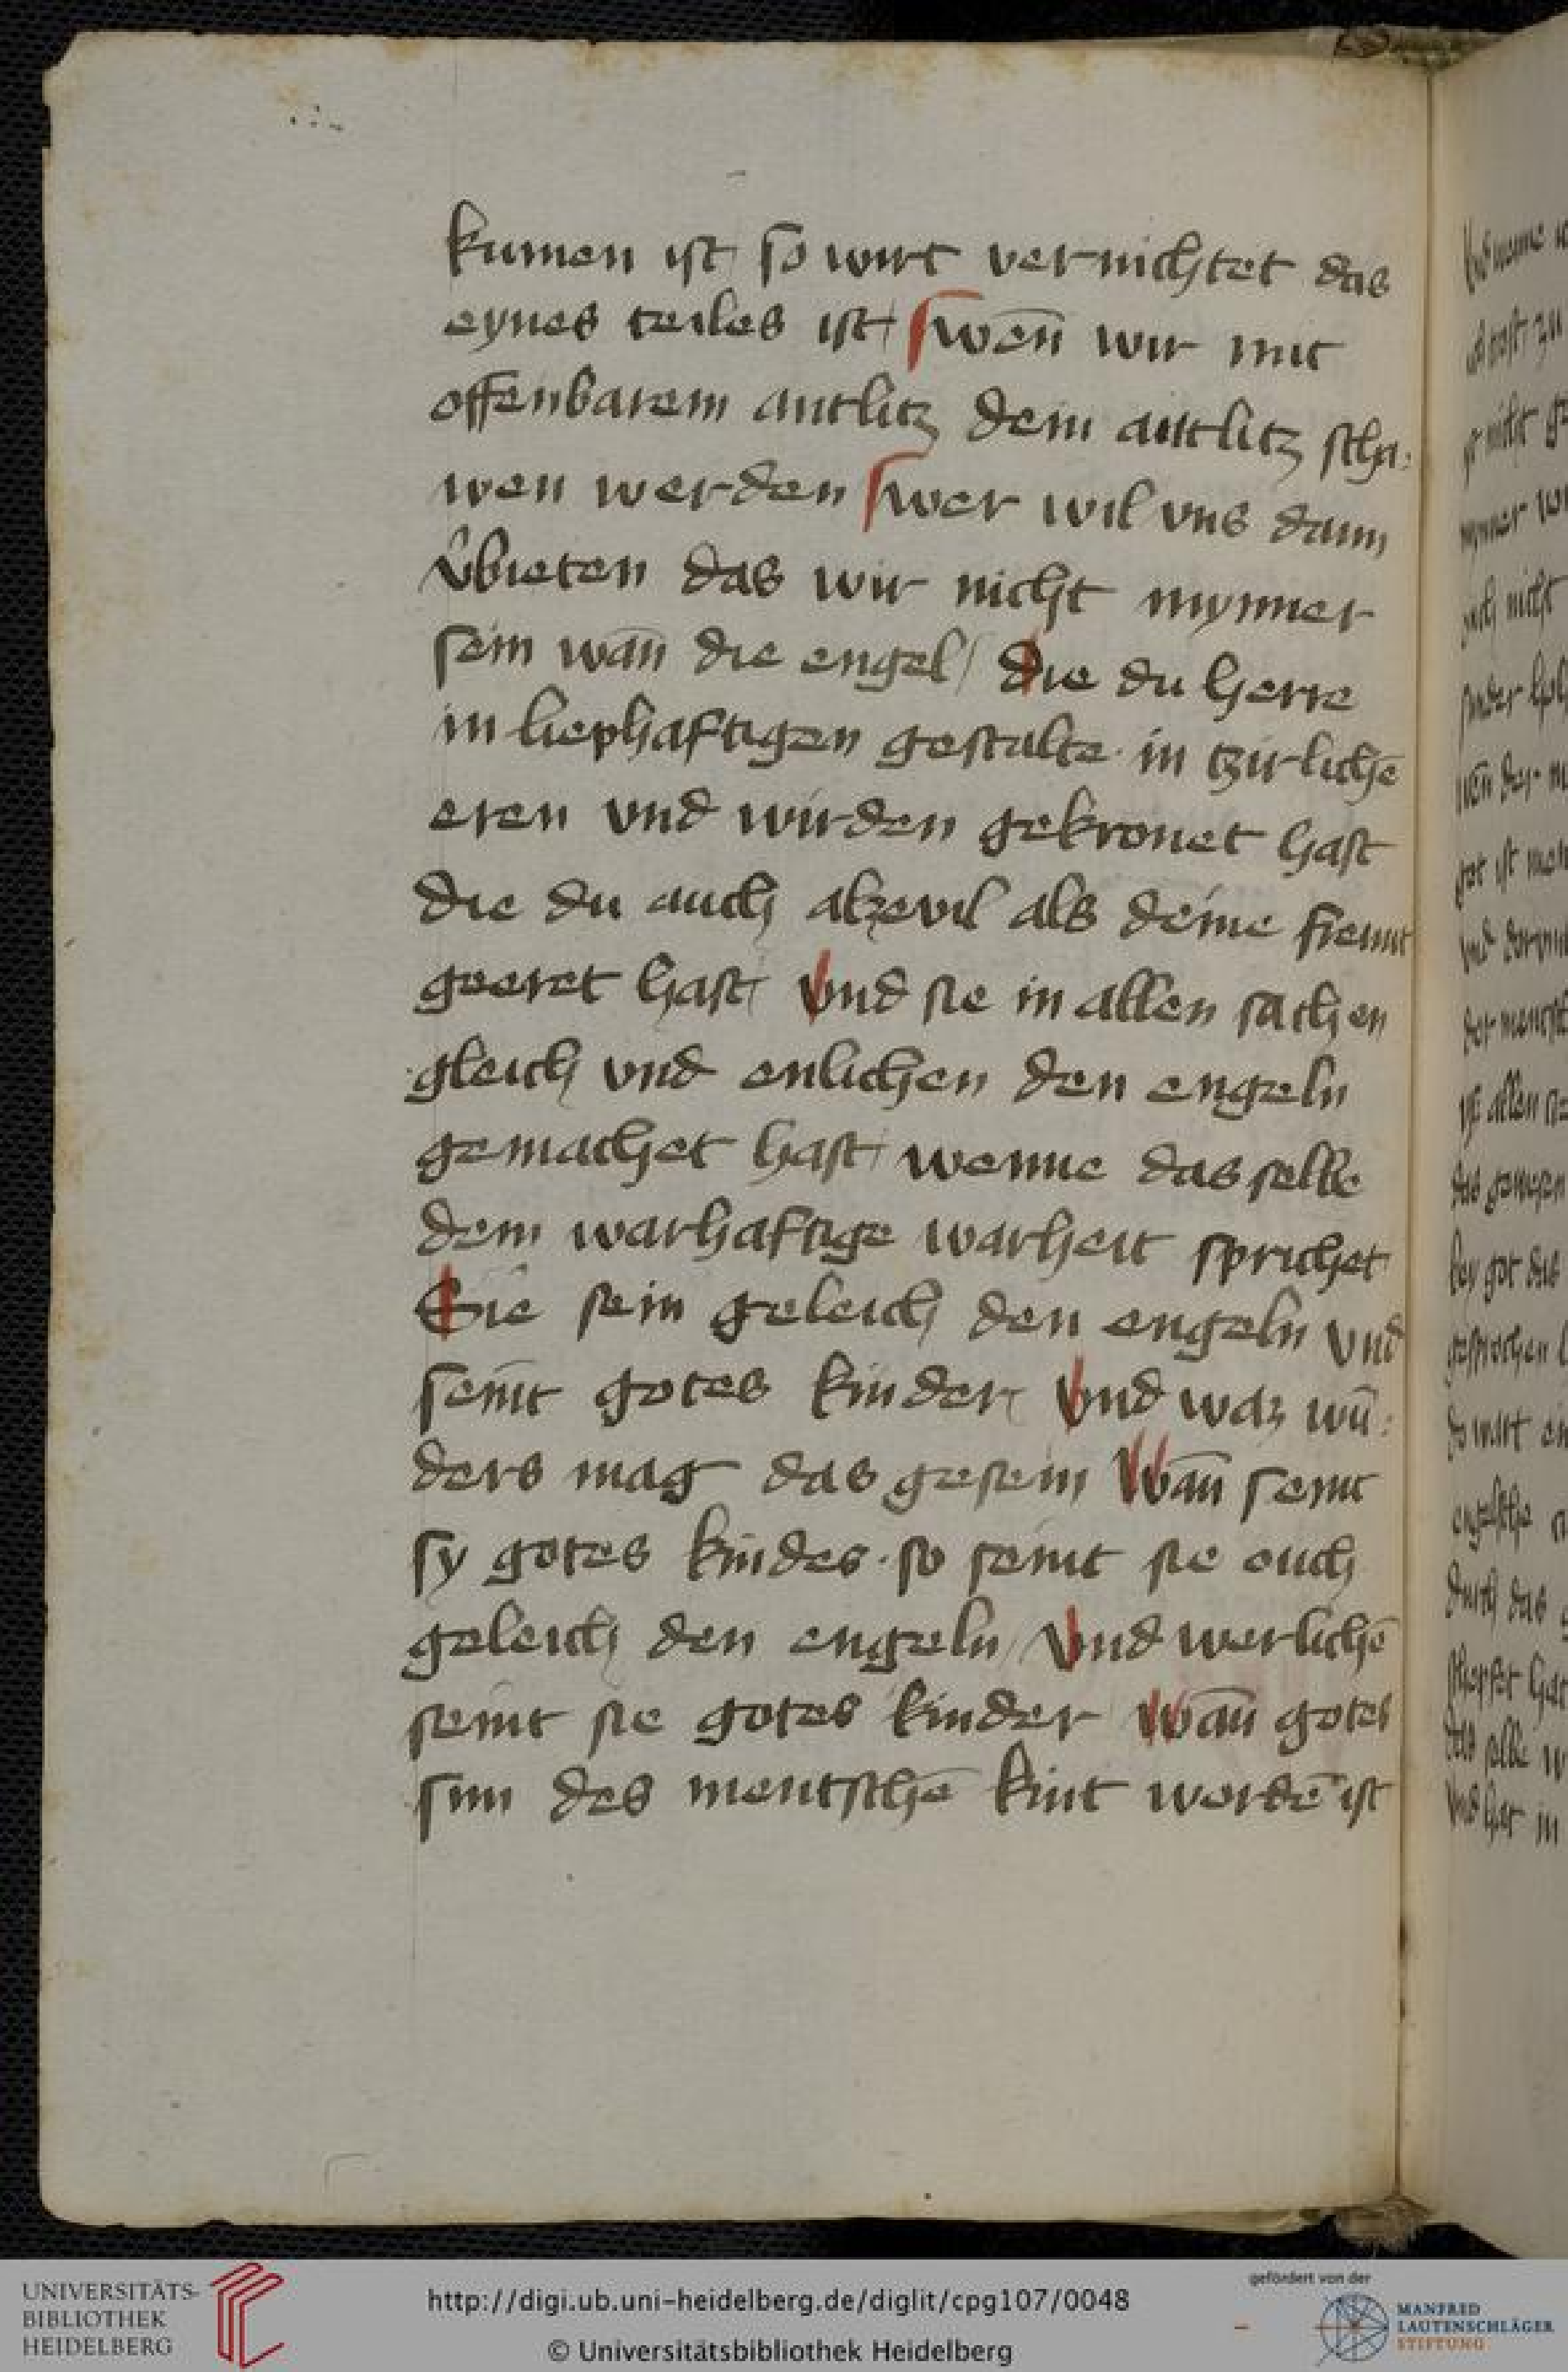 kumen ist so wirt vernichtet das
eynes teiles ist swen̄ wir mit
offenbarem antlitz dein antlitz scha:
wen werden swer wil vns dann
v̂bieten das wir nicht mynner
sein wan̄ die engel / die du herre
in liephaftigen gestalte · in tzirlichē
eren vnd wirden gekronet hast
die du auch alzevil als deine frewnt
geeret hast Vnd sie in allen sachen
gleich vnd enlichen den engeln
gemachet hast wenne das selbe
dem warhaftige warheit sprichet
Sie sein geleich den engeln vnd
seint gotes kinder Vnd waz wū:
ders mag das gesein Wan̄ seint
sy gotes kindes · so seint sie ouch
geleich den engeln / Vnd werlichē
seint sie gotes kinder Wan̄ gotes
sun des mentschē kint wordē ist
UNIVERSITÄTS-
BIBLIOTHEK
HEIDELBERG
http://digi.ub.uni-heidelberg.de/diglit/cpg107/0048
© Universitätsbibliothek Heidelberg
gefördert von der
MANFRED
LAUTENSCHLÄGER
STIFTUNG